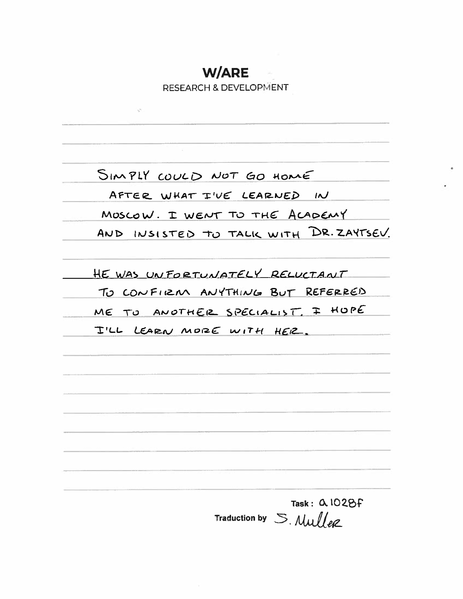 W/ARE
RESEARCH & DEVELOPMENT
SIMPLY COULD NOT GO HOME
AFTER WHAT I'VE LEARNED IN
MOSCOW. I WENT TO THE ACADEMY
AND INSISTED TO TALK WITH DR. ZAYTSEV.
HE WAS UNFORTUNATELY RELUCTANT
TO CONFIRM ANYTHING BUT REFERRED
ME TO ANOTHER SPECIALIST. I HOPE
I'LL LEARN MORE WITH HER.
Task : a1028f
Traduction by S. Muller